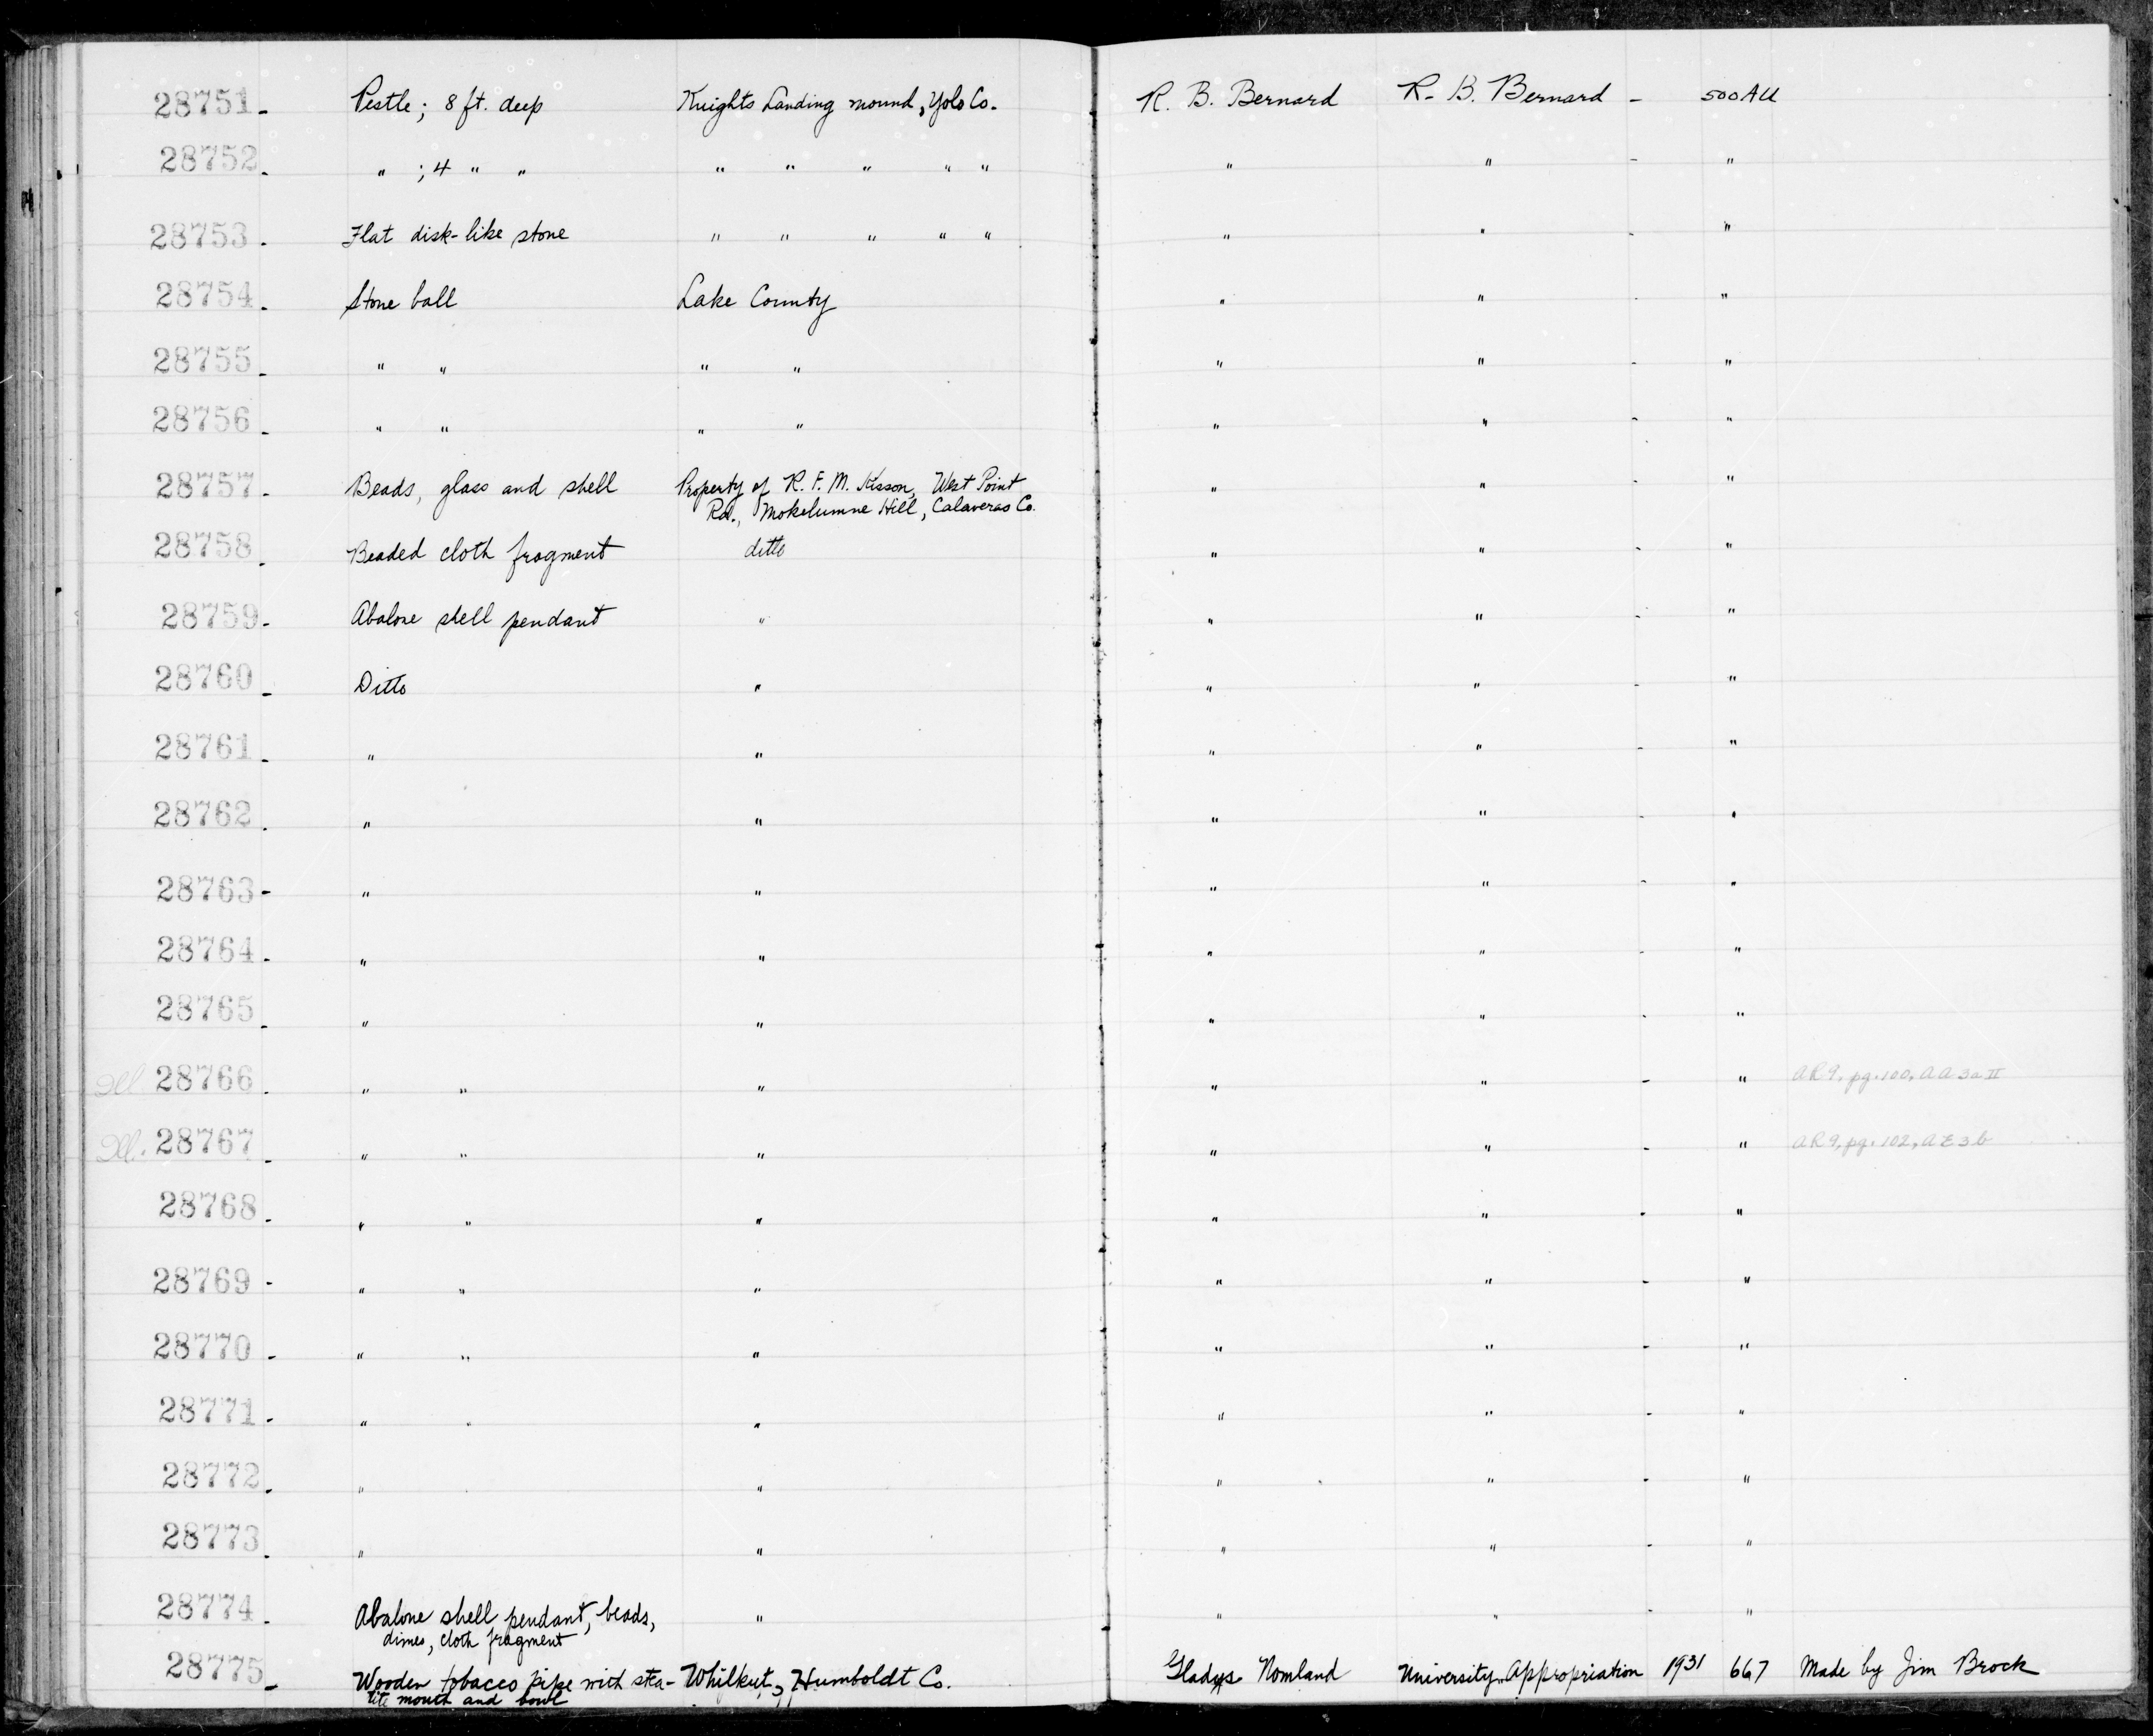 28751- Pestle; 8 ft. deep Knights Landing mound, Yolo Co. R. B. Bernard R. B. Bernard - 500AU
28752. " ; 4 " " " " " " " " " - "
28753. Flat disk-like stone " " " " " " " - "
28754. Stone ball Lake County " " - "
28755. " " " " " " - "
28756. " " " " " " - "
28757. Beads, glass and shell Property of R. F. M. Kisson, West Point " " - "
Rd., Mokelumne Hill, Calaveras Co.
28758. Beaded cloth fragment ditto " " - "
28759- Abalone shell pendant " " " - "
28760- Ditto " " " - "
28761. " " " " - "
28762. " " " " - "
28763- " " " " - "
28764. " " " " - "
28765. " " " " - "
Ill. 28766. " " " " " - " AR9, pg. 100, AA3aII
Ill. 28767. " " " " " - " AR9, pg. 102, AE3b
28768. " " " " " - "
28769- " " " " " - "
28770- " " " " " - "
28771- " " " " " - "
28772. " " " " - "
28773. " " " " - "
28774. Abalone shell pendant, beads, " " " - "
dimes, cloth fragment
28775- Wooden tobacco pipe with stea- Whilkut, Humboldt Co. Gladys Nomland University Appropriation 1931 667 Made by Jim Brock
tite mouth and bowl